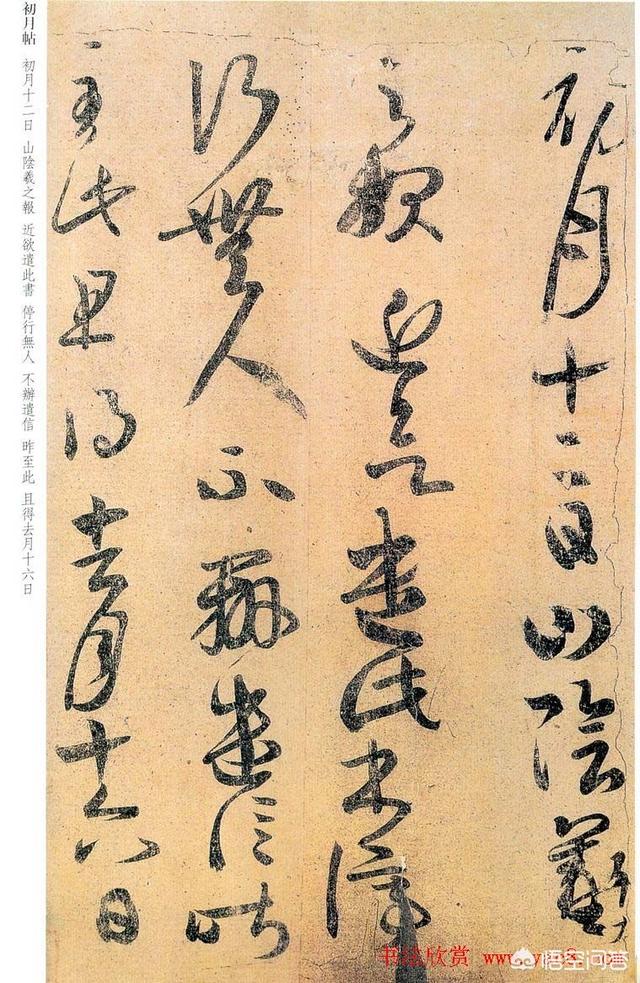 初月十二日山陰羲
之報近欲遣此書停
行無人不辦遣信昨
至此且得去月十六日
初月帖 初月十二日 山陰羲之報 近欲遣此書 停行無人 不辦遣信 昨至此 且得去月十六日
书法欣赏
悟空问答